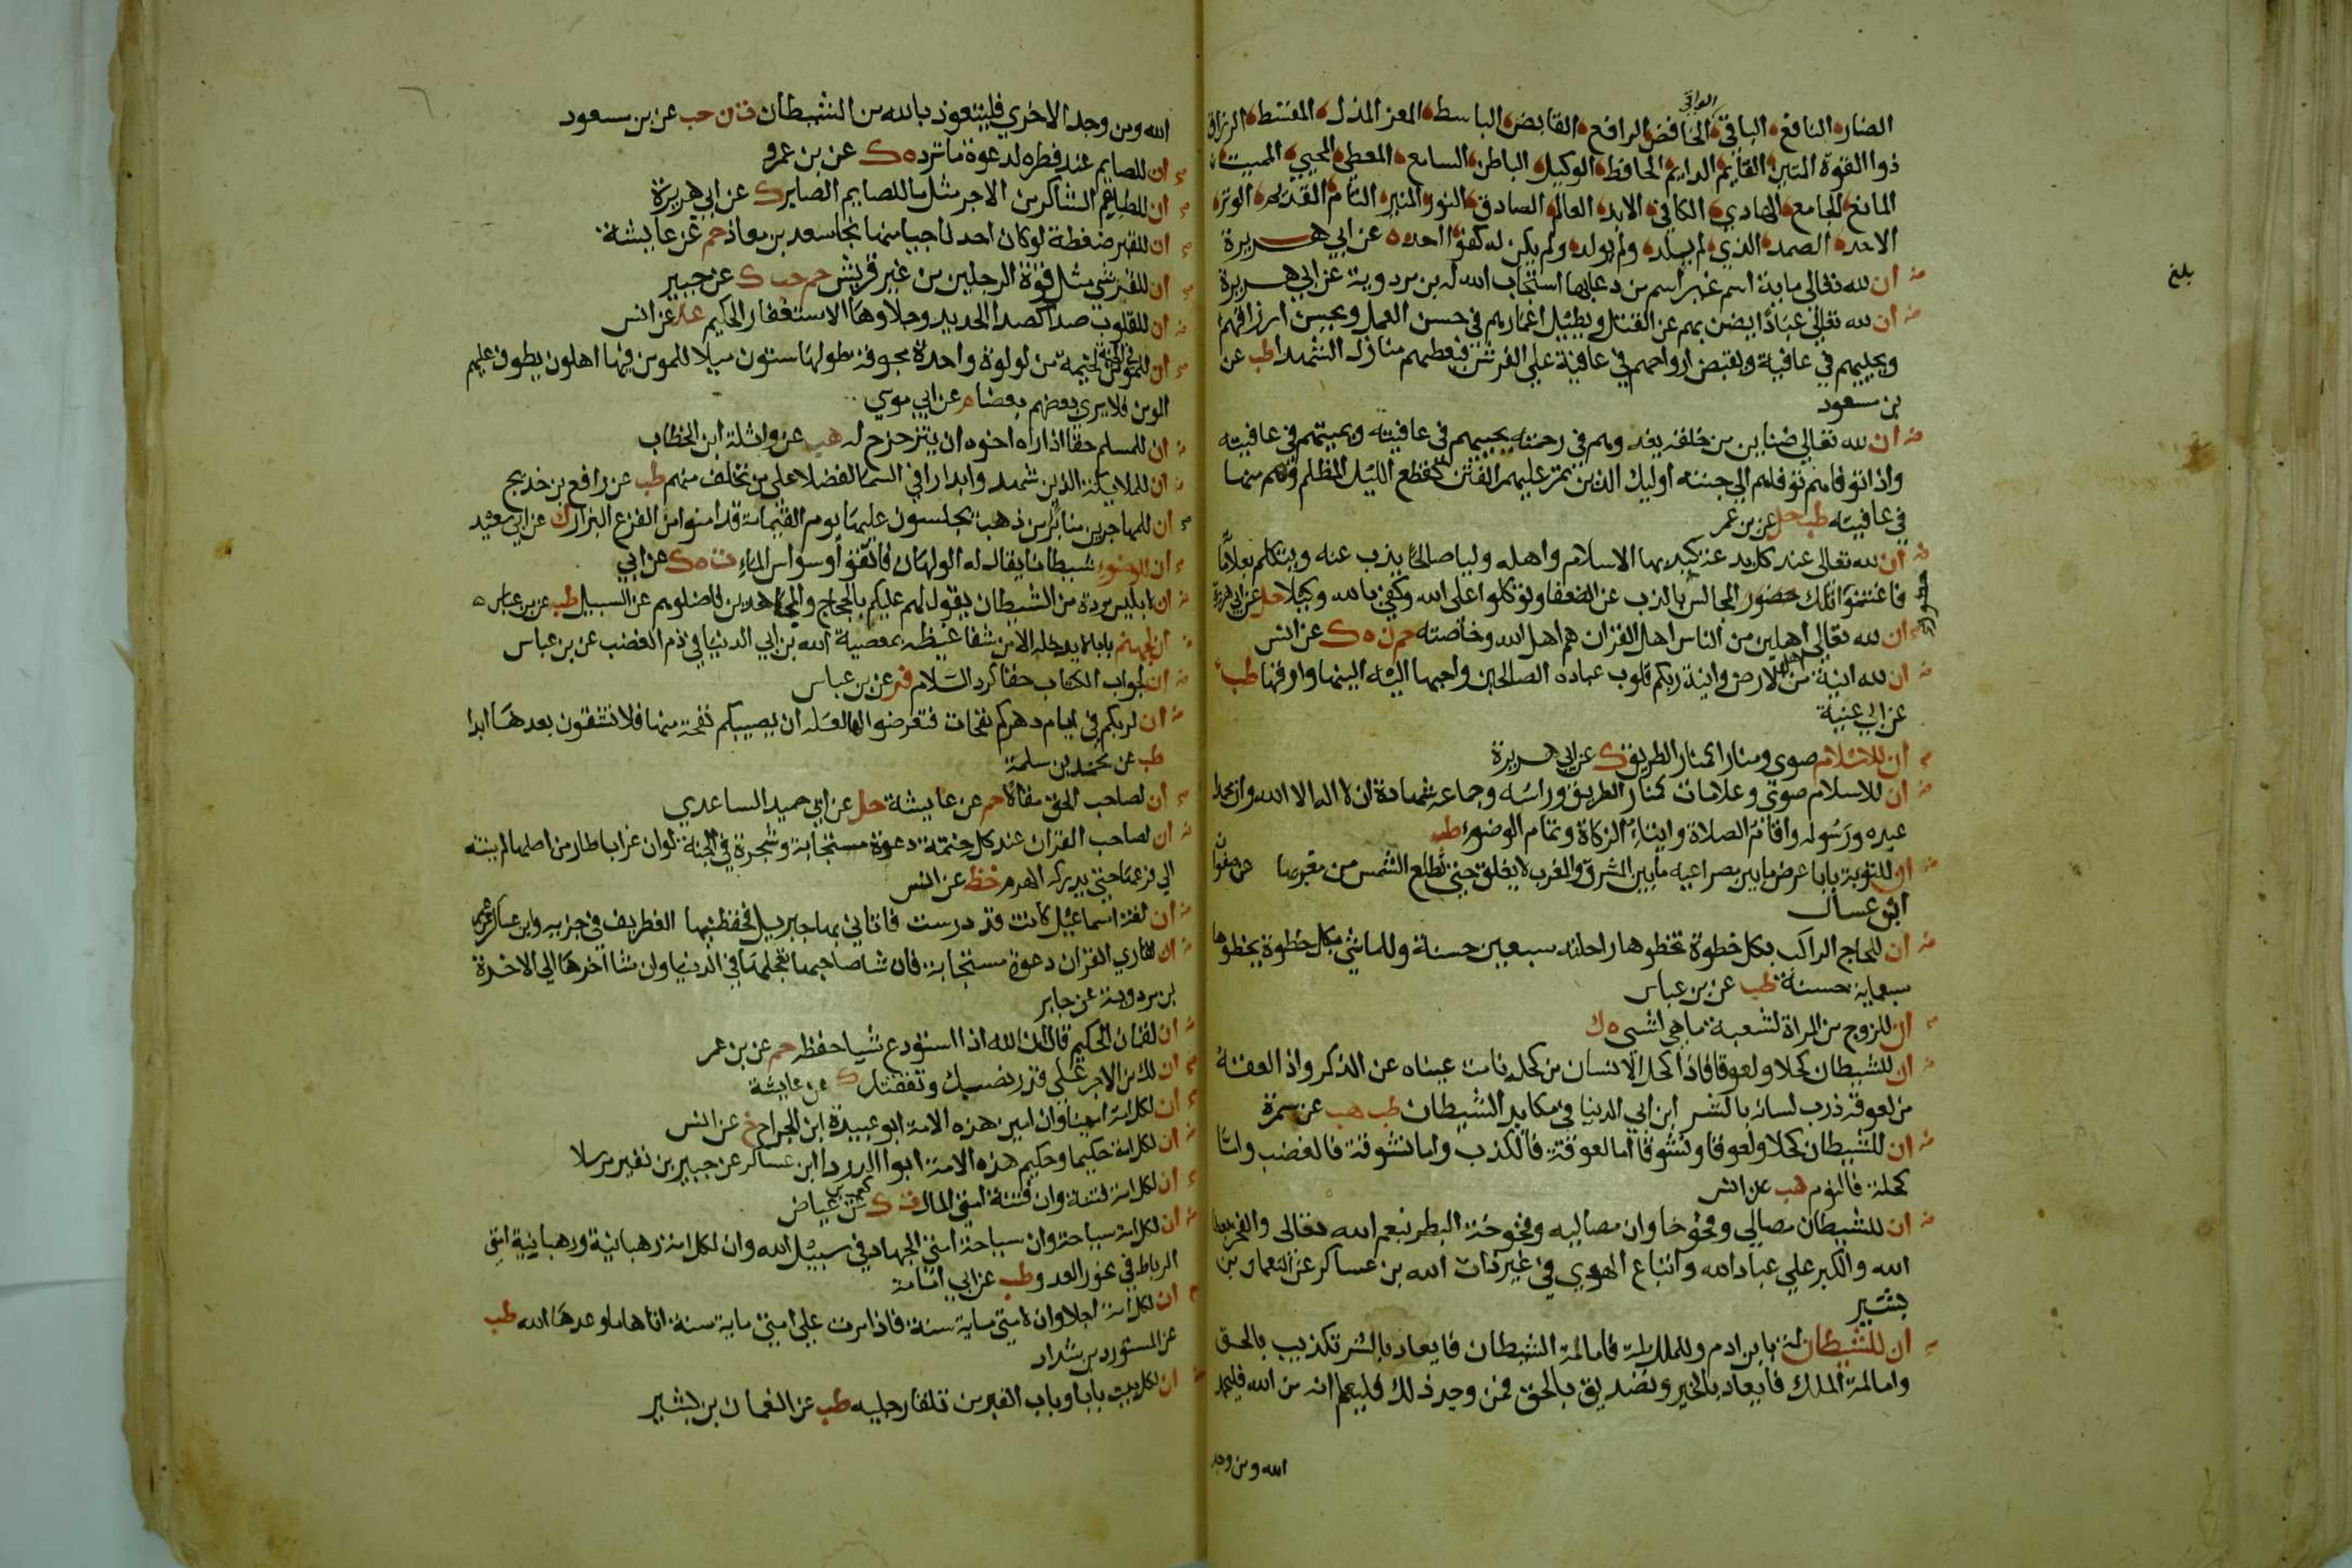 الواقي
الضار النافع الباقي الخافض الرافع القابض الباسط المعز المذل المقسط الرزاق
ذوا القوة المتين القايم الدايم الحافظ الوكيل الباطن السامع المعطي المحيي المميت
المانع الجامع الهادي الكافي الابد العالم الصادق النور المنير التام القديم الوتر
الاحد الصمد الذي لم يلد ولم يولد ولم يكن له كفوا احد ه عن ابي هريرة
بلغ
ان لله تعالى ماية اسم غير اسم من دعا بها استجاب الله له بن مردوية عن ابي هريرة
ان لله تعالى عبادا يضن بهم عن القتل ويطيل اعمارهم في حسن العمل ويحسن ارزاقهم
ويحييهم في عافية ويقبض ارواحهم في عافية على الفرش فيعطيهم منازل الشهدا طب عن
بن مسعود
ان لله تعالى ضناين من خلقه يغدوهم في رحمته يحييهم في عافيته ويميتهم في عافيته
واذا توفاهم توفاهم الى جنته اوليك الذين تمر عليهم الفتن كقطع الليل المظلم وهم منها
في عافية طب حل عن بن عمر
ان لله تعالى عند كل بدعة كيد بها الاسلام واهله وليا صالحا يذب عنه ويتكلم بعلاماته
فاغتنموا تلك حضور المجالس بالذب عن الضعفا وتوكلوا على الله وكفى بالله وكيلا حل عن ابي هريرة
ان لله تعالى اهلين من الناس اهل القران هم اهل الله وخاصته حم ن ه ك عن انس
ان لله انية من اهل الارض وانية ربكم قلوب عباده الصالحين واحبها اليه الينها وارقها طب
عن ابي عنبة
ان للاسلام صوى ومنارا كمنار الطريق ك عن ابي هريرة
ان للاسلام صوى وعلامات كمنار الطريق وراسه وجماعه شهادة ان لا اله الا الله وان محمدا
عبده ورسوله واقام الصلاة وايتاء الزكاة وتمام الوضوء طب
ان للتوبة بابا عرض ما بين مصراعيه ما بين المشرق والمغرب لا يغلق حتى تطلع الشمس من مغربها عن صفوان
ابن عسال
ان للحاج الراكب بكل خطوة تخطوها راحلته سبعين حسنة وللماشي بكل خطوة يخطوها
سبعماية حسنة طب عن بن عباس
ان للزوج من المراة لشعبة ما هي لشي ه ك
ان للشيطان كحلا ولعوقا فاذا كحل الانسان من كحله نامت عيناه عن الذكر واذا لعقه
من لعوقه ذرب لسانه بالشر ابن ابي الدنيا في مكايد الشيطان طب هب عن سمرة
ان للشيطان كحلا ولعوقا ونشوقا اما لعوقه فالكذب واما نشوقه فالغضب واما
كحله فالنوم هب عن انس
ان للشيطان مصالي وفخوخا وان مصاليه وفخوخه البطر بنعم الله تعالى والفخر بعطاء
الله والكبر على عباد الله واتباع الهوى في غير ذات الله بن عساكر عن النعمان بن
بشير
ان للشيطان لمة بابن ادم وللملك لمة فاما لمة الشيطان فايعاد بالشر وتكذيب بالحق
واما لمة الملك فايعاد بالخير وتصديق بالحق فمن وجد ذلك فليعلم انه من الله فليحمد
الله ومن وجد
الله ومن وجد الاخرى فليتعوذ بالله من الشيطان ت ن حب عن بن مسعود
ان للصايم عند فطره لدعوة ما ترد ه ك عن بن عمرو
ان للطاعم الشاكر من الاجر مثل ما للصايم الصابر ك عن ابي هريرة
ان للقبر ضغطة لو كان احد ناجيا منها نجا سعد بن معاذ حم عن عايشة
ان للقرشي مثل قوة الرجلين من غير قريش حم حب ك عن جبير
ان للقلوب صدا كصدا الحديد وجلاوها الاستغفار الحكيم عد عن انس
ان للمومن في الجنة لخيمة من لولوة واحدة مجوفة طولها ستون ميلا للمومن فيها اهلون يطوف عليهم
المومن فلا يرى بعضهم بعضا م عن ابي موسي
ان للمسلم حقا اذا راه اخوه ان يتزحزح له هب عن واثلة ابن الخطاب
ان للملايكة الذين شهدوا بدرا في السما لفضلا على من تخلف منهم طب عن رافع بن خديج
ان للمهاجرين منابر من ذهب يجلسون عليها يوم القيامة قد امنوا من الفزع البزار ك عن ابي سعيد
ان للوضوء شيطانا يقال له الولهان فاتقوا وسواس الماء ت ه ك عن ابي
ان لابليس مردة من الشيطان يقول لهم عليكم بالحجاج والمجاهدين فاضلوهم عن السبيل طب عن بن عباس
ان لجهنم بابا لا يدخله الا من شفا غيظه بمعصية الله بن ابي الدنيا في ذم الغضب عن بن عباس
ان لجواب الكتاب حقا كرد السلام فر عن بن عباس
ان لربكم في ايام دهركم نفحات فتعرضوا لها لعله ان يصيبكم نفحة منها فلا تشقون بعدها ابدا
طب عن محمد بن سلمة
ان لصاحب الحق مقالا حم عن عايشة حل عن ابي حميد الساعدي
ان لصاحب القران عند كل ختمة دعوة مستجابة وشجرة في الجنة لو ان غرابا طار من اصلها لم ينته
الى فرعها حتى يدركه الهرم خط عن انس
ان لغة اسماعيل كانت قد درست فاتاني بها جبريل فحفظنيها الغطريف في جزيه وابن عساكر عن عمر
ان لقاري القران دعوة مستجابة فان شا صاحبها تعجلها في الدنيا وان شا اخرها الى الاخرة
بن مردوية عن جابر
ان لقمان الحكيم قال ان الله اذا استودع شيا حفظه حم عن بن عمر
ان لك من الاجر على قدر نصبك ونفقتك ك عن عايشة
ان لكل امة امينا وان امين هذه الامة ابو عبيدة ابن الجراح خ عن انس
ان لكل امة حكيما وحكيم هذه الامة ابوا الدردا ابن عساكر عن جبير بن نفير مرسلا
ان لكل امة فتنة وان فتنة امتي المال ت ك عن كعب بن عياض
ان لكل امة سياحة وان سياحة امتي الجهاد في سبيل الله وان لكل امة رهبانية ورهبانية امتي
الرباط في نحور العدو طب عن ابي امامة
ان لكل امة اجلا وان لامتي ماية سنة فاذا مرت على امتي ماية سنة اتاها ما وعدها الله طب
عن المستورد بن شداد
ان لكل بيت بابا وباب القبر من تلقا رجليه طب عن النعمان بن بشير